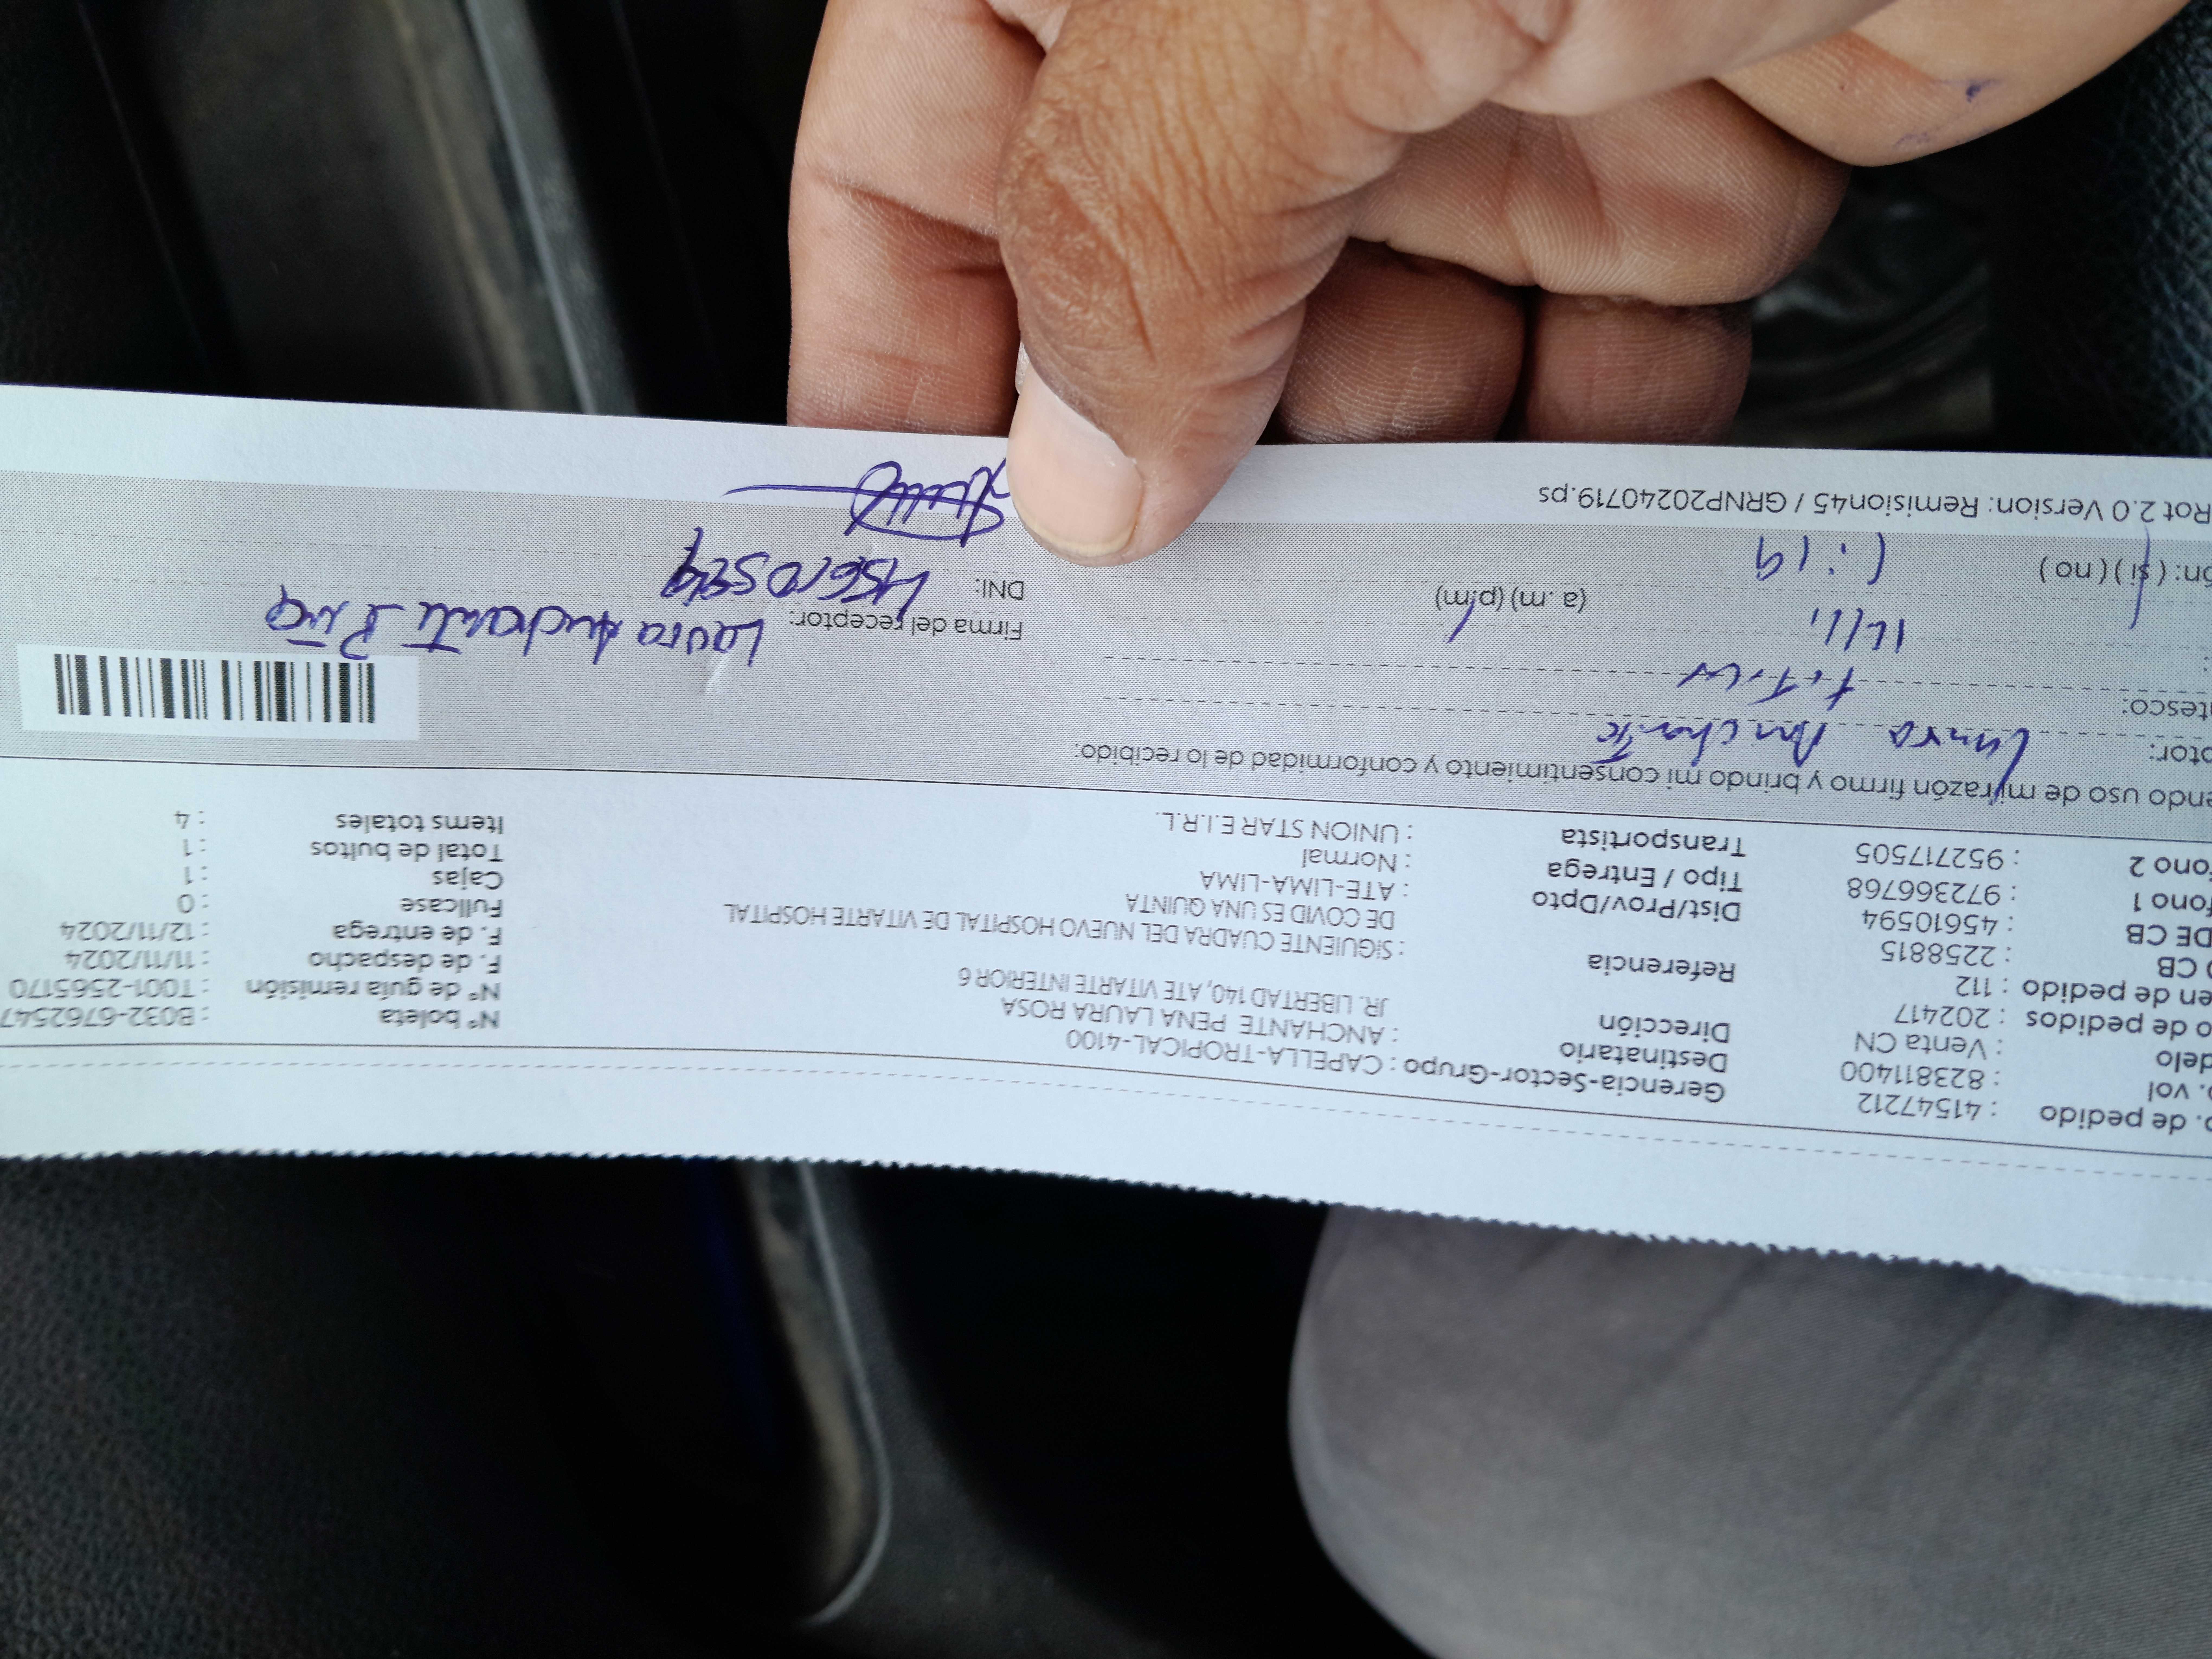 o. de pedido : 41547212
o. vol : 823811400
delo : Venta CN
o de pedidos : 202417
en de pedido : 112
o CB : 2258815
DE CB : 45610594
fono 1 : 972366768
fono 2 : 952717505
Gerencia-Sector-Grupo : CAPELLA-TROPICAL-4100
Destinatario : ANCHANTE PENA LAURA ROSA
Dirección JR. LIBERTAD 140, ATE VITARTE INTERIOR 6
Referencia : SIGUIENTE CUADRA DEL NUEVO HOSPITAL DE VITARTE HOSPITAL
DE COVID ES UNA QUINTA
Dist/Prov/Dpto : ATE-LIMA-LIMA
Tipo / Entrega : Normal
Transportista : UNION STAR E.I.R.L.
N° boleta : B032-6762547
N° de guía remisión : T001-2565170
F. de despacho : 11/11/2024
F. de entrega : 12/11/2024
Fullcase : 0
Cajas : 1
Total de bultos : 1
Items totales : 4
endo uso de mi razón firmo y brindo mi consentimiento y conformidad de lo recibido:
ptor: Laura Anchante
ntesco:
:
(a. m) (p.m)
ón: (si) (no) 1:19
Firma del receptor: Laura Anchante
DNI: 45610594
Rot 2.0 Version: Remision45 / GRNP20240719.ps